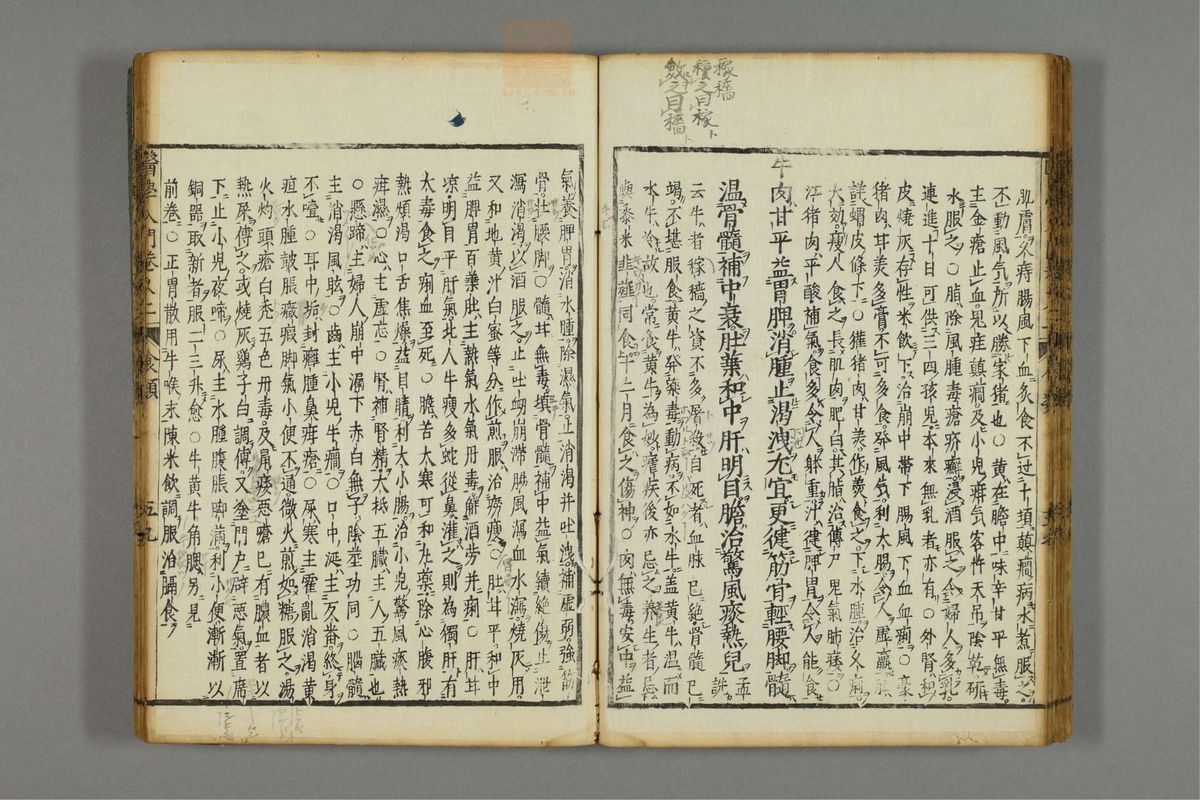 稼穡
種之曰稼
斂之曰穡
肌膚不痔腸風下血炙食不过十頓顛癇病水煮服之
不動風氣所以勝家猪也○黄在膽中味辛甘平無毒
主金瘡止血兒疰顛癇及小兒疳氣客忤天吊陰乾研
水服之○脂除風腫毒瘡疥癬浸酒服之令婦人多乳
連進十日可供三四孩兒本來無乳者亦有○外腎和
皮燒灰存性米飲下治崩中帶下腸風下血血痢○豪
猪肉甘美多膏不可多食發風氣利大腸令人虛羸肚
詳蝟皮條下○獾猪肉甘美作羹食之下水腫治久痢
大効瘦人食之長肌肉肥白其脂治傳尸鬼氣肺痿○
江猪肉平酸補氣食多令人躰重汁健脾胃令人能食
牛肉甘平益胃脾消腫止渴洩尤宜更健筋骨輕腰脚髓
温骨髓補中衰肚藥和中肝明目膽治驚風痰熱兒
詵孟
云牛者稼穡之資不多屠殺自死者血脉已絶骨髓已
竭不堪服食黄牛發藥毒動病不如水牛盖黄牛温而
水牛冷故也常食黄牛為妙瘥疾後亦忌之养生者忌
與黍米韭薤同食牛二月食之傷神○肉無毒安中益
氣養脾胃消水腫除濕氣止消渴并吐洩補虛弱強筋
骨壯腰脚○髓甘無毒填骨髓補中益氣續絶傷止泄
瀉消渴以酒服之止吐衄崩滯腸風瀉血水瀉燒灰用
又和地黄汁白蜜等分作煎服治瘦○肚甘平和中
益脾胃百藥肚主熱氣水氣丹毒解酒労并痢○肝甘
凉明目平肝氣北人牛瘦多蛇從鼻灌之則為獨肝有
大毒食之痢血至死○膽苦大寒可和九藥除心腹利
熱煩渴口舌焦燥益目睛利大小腸治小兒驚風痰熱
痺濕○心主虛忘○腎補腎精大抵五臟主人五臟也
○懸蹄主婦人崩中漏下赤白無子陰莖功同○腦髓
主消渴風眩○齒主小兒牛癇○口中涎主反畨終身
不噎○耳中垢封癰腫鼻疳瘡○屎寒主霍亂消渴黄
疸水腫皷脹癥瘕脚氣小便不通微火煎如糖服之湯
火灼頭瘡白秃五色丹毒及鼻瘘悪瘡已有膿血者以
熱屎傅之或燒灰鷄子白調傅又塗門户辟悪氣置席
下止小兒夜啼○尿主水腫腹脹脚滿利小便漸漸以
銅器取新者服二三升愈○牛黄牛角䚡另見
前卷○正胃散用牛喉末陳米飲調服治膈食
醫學入門卷以二
食類
五九